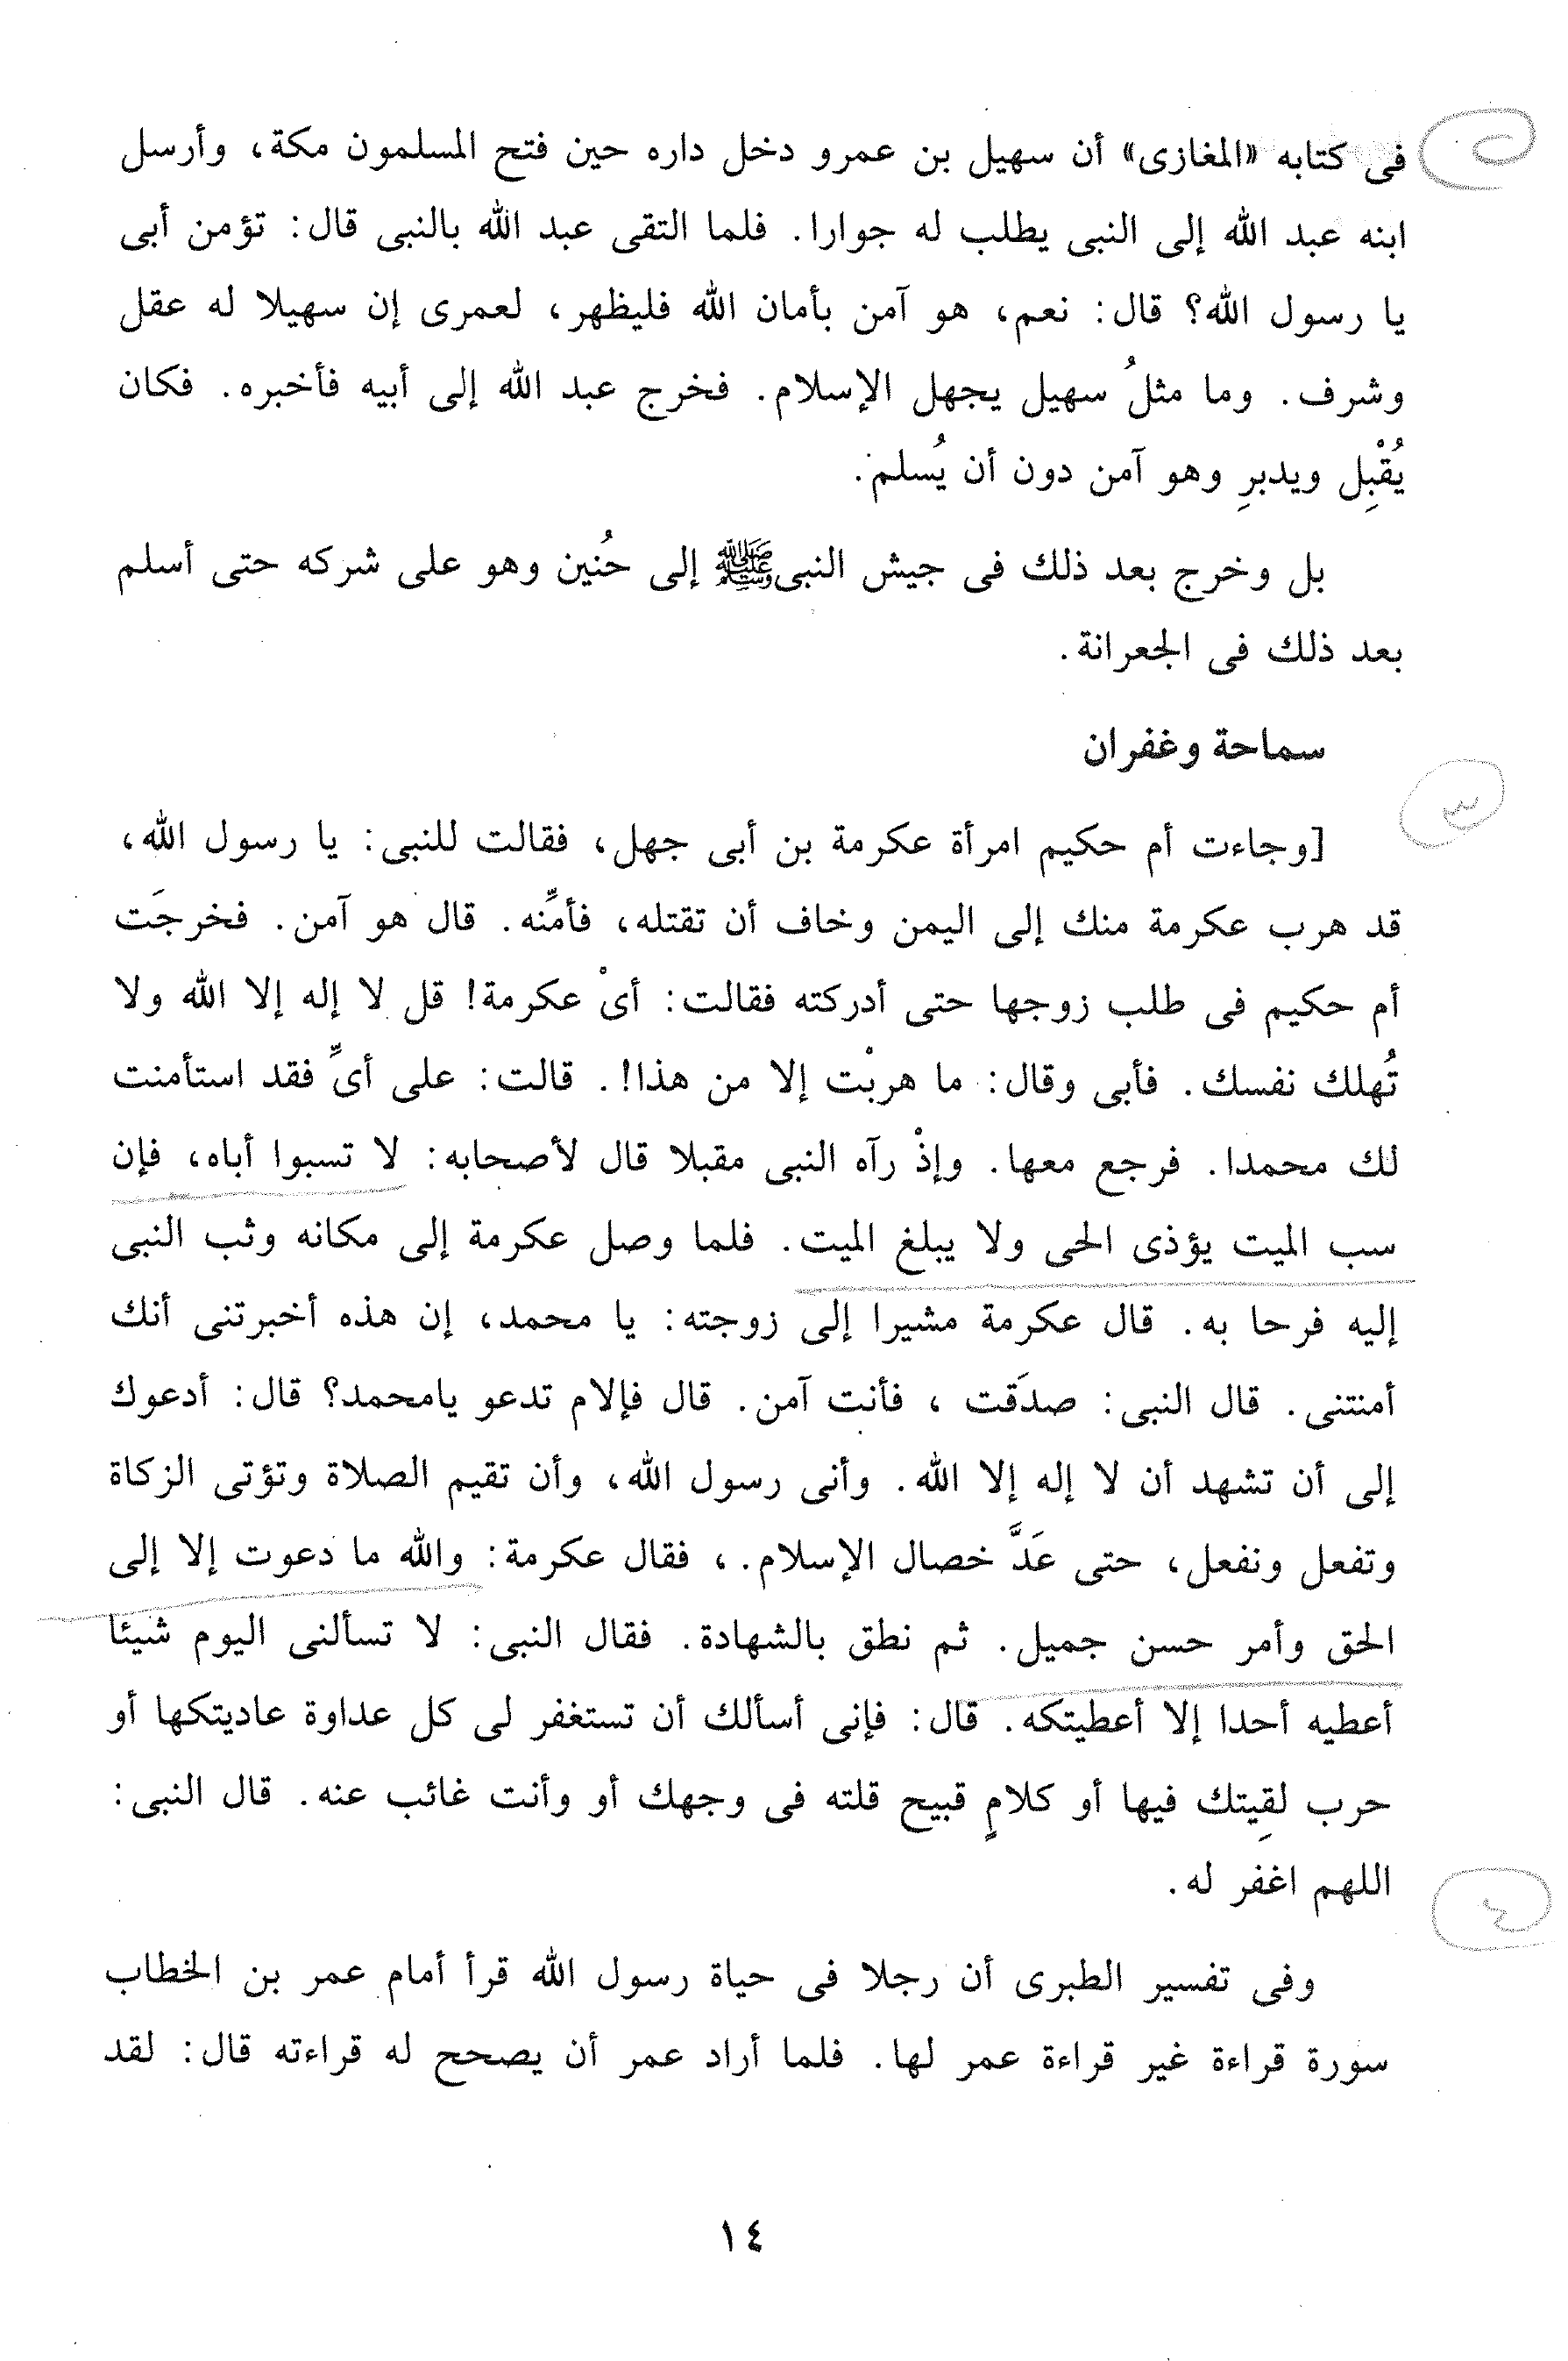 فى كتابه «المغازى» أن سهيل بن عمرو دخل داره حين فتح المسلمون مكة، وأرسل
ابنه عبد الله إلى النبى يطلب له جوارا. فلما التقى عبد الله بالنبى قال: تؤمن أبى
يا رسول الله؟ قال: نعم، هو آمن بأمان الله فليظهر، لعمرى إن سهيلا له عقل
وشرف. وما مثلُ سهيل يجهل الإسلام. فخرج عبد الله إلى أبيه فأخبره. فكان
يُقْبِل ويدبرِ وهو آمن دون أن يُسلم.
بل وخرج بعد ذلك فى جيش النبى ﷺ إلى حُنين وهو على شركه حتى أسلم
بعد ذلك فى الجعرانة.
سماحة وغفران
٣
[وجاءت أم حكيم امرأة عكرمة بن أبى جهل، فقالت للنبى: يا رسول الله،
قد هرب عكرمة منك إلى اليمن وخاف أن تقتله، فأمِّنه. قال هو آمن. فخرجَت
أم حكيم فى طلب زوجها حتى أدركته فقالت: أىْ عكرمة! قل لا إله إلا الله ولا
تُهلك نفسك. فأبى وقال: ما هربْت إلا من هذا!. قالت: على أىٍّ فقد استأمنت
لك محمدا. فرجع معها. وإذْ رآه النبى مقبلا قال لأصحابه: لا تسبوا أباه، فإن
سب الميت يؤذى الحى ولا يبلغ الميت. فلما وصل عكرمة إلى مكانه وثب النبى
إليه فرحا به. قال عكرمة مشيرا إلى زوجته: يا محمد، إن هذه أخبرتنى أنك
أمنتنى. قال النبى: صدَقت ، فأنت آمن. قال فإلام تدعو يامحمد؟ قال: أدعوك
إلى أن تشهد أن لا إله إلا الله. وأنى رسول الله، وأن تقيم الصلاة وتؤتى الزكاة
وتفعل ونفعل، حتى عَدَّ خصال الإسلام.، فقال عكرمة: والله ما دعوت إلا إلى
الحق وأمر حسن جميل. ثم نطق بالشهادة. فقال النبى: لا تسألنى اليوم شيئا
أعطيه أحدا إلا أعطيتكه. قال: فإنى أسألك أن تستغفر لى كل عداوة عاديتكها أو
حرب لقِيتك فيها أو كلامٍ قبيح قلته فى وجهك أو وأنت غائب عنه. قال النبى:
اللهم اغفر له.
٤
وفى تفسير الطبرى أن رجلا فى حياة رسول الله قرأ أمام عمر بن الخطاب
سورة قراءة غير قراءة عمر لها. فلما أراد عمر أن يصحح له قراءته قال: لقد
١٤